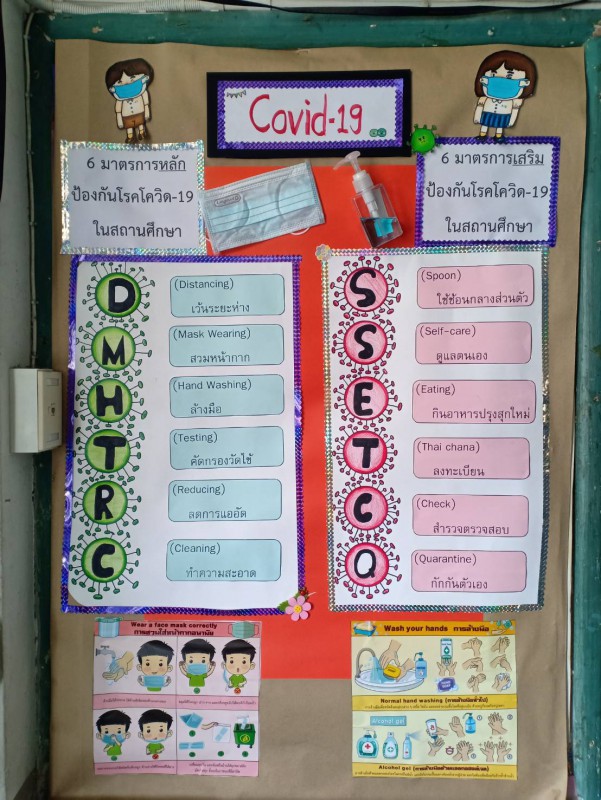 Covid-19
6 มาตรการหลัก
ป้องกันโรคโควิด-19
ในสถานศึกษา
6 มาตรการเสริม
ป้องกันโรคโควิด-19
ในสถานศึกษา
D
(Distancing)
เว้นระยะห่าง
M
(Mask Wearing)
สวมหน้ากาก
H
(Hand Washing)
ล้างมือ
T
(Testing)
คัดกรองวัดไข้
R
(Reducing)
ลดการแออัด
C
(Cleaning)
ทำความสะอาด
S
(Spoon)
ใช้ช้อนกลางส่วนตัว
S
(Self-care)
ดูแลตนเอง
E
(Eating)
กินอาหารปรุงสุกใหม่
T
(Thai chana)
ลงทะเบียน
C
(Check)
สำรวจตรวจสอบ
Q
(Quarantine)
กักกันตัวเอง
Wear a face mask correctly
การสวมใส่หน้ากากอนามัย
Wash your hands การล้างมือ
Normal hand washing (การล้างมือทั่วไป)
Alcohol gel
Alcohol gel (การล้างมือด้วยแอลกอฮอล์เจล)